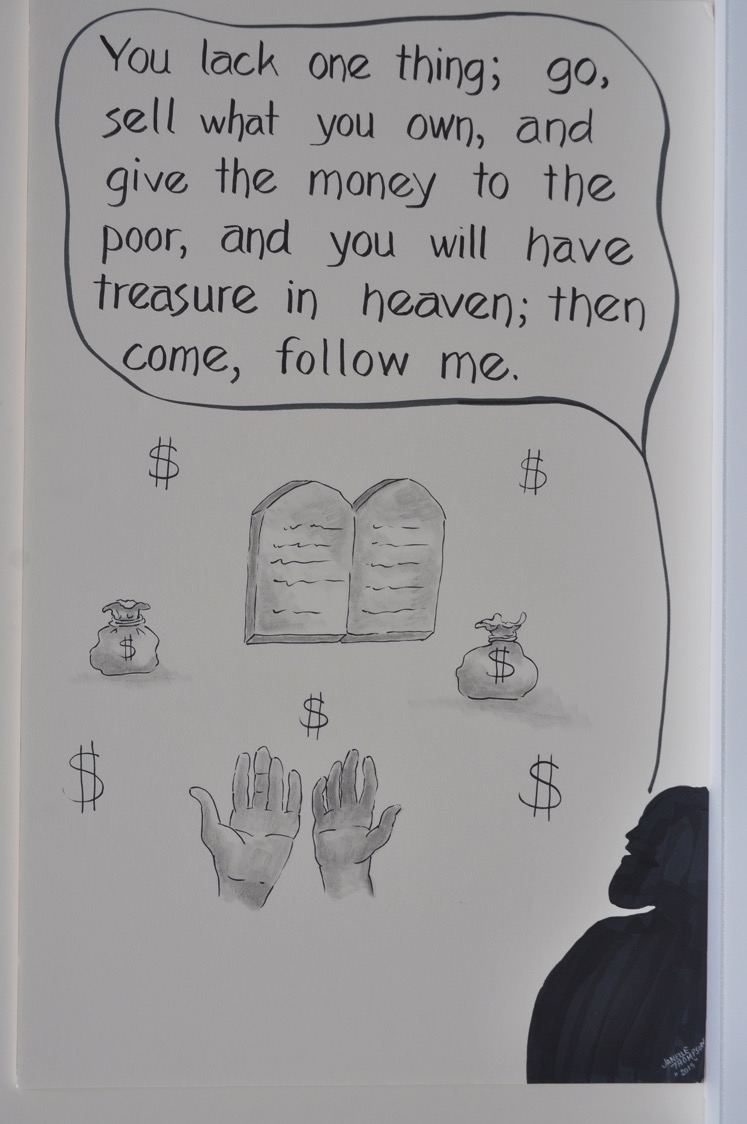 You lack one thing; go,
sell what you own, and
give the money to the
poor, and you will have
treasure in heaven; then
come, follow me.
$
$
$
$
$
$
$
JANELLE
THOMPSON
2015